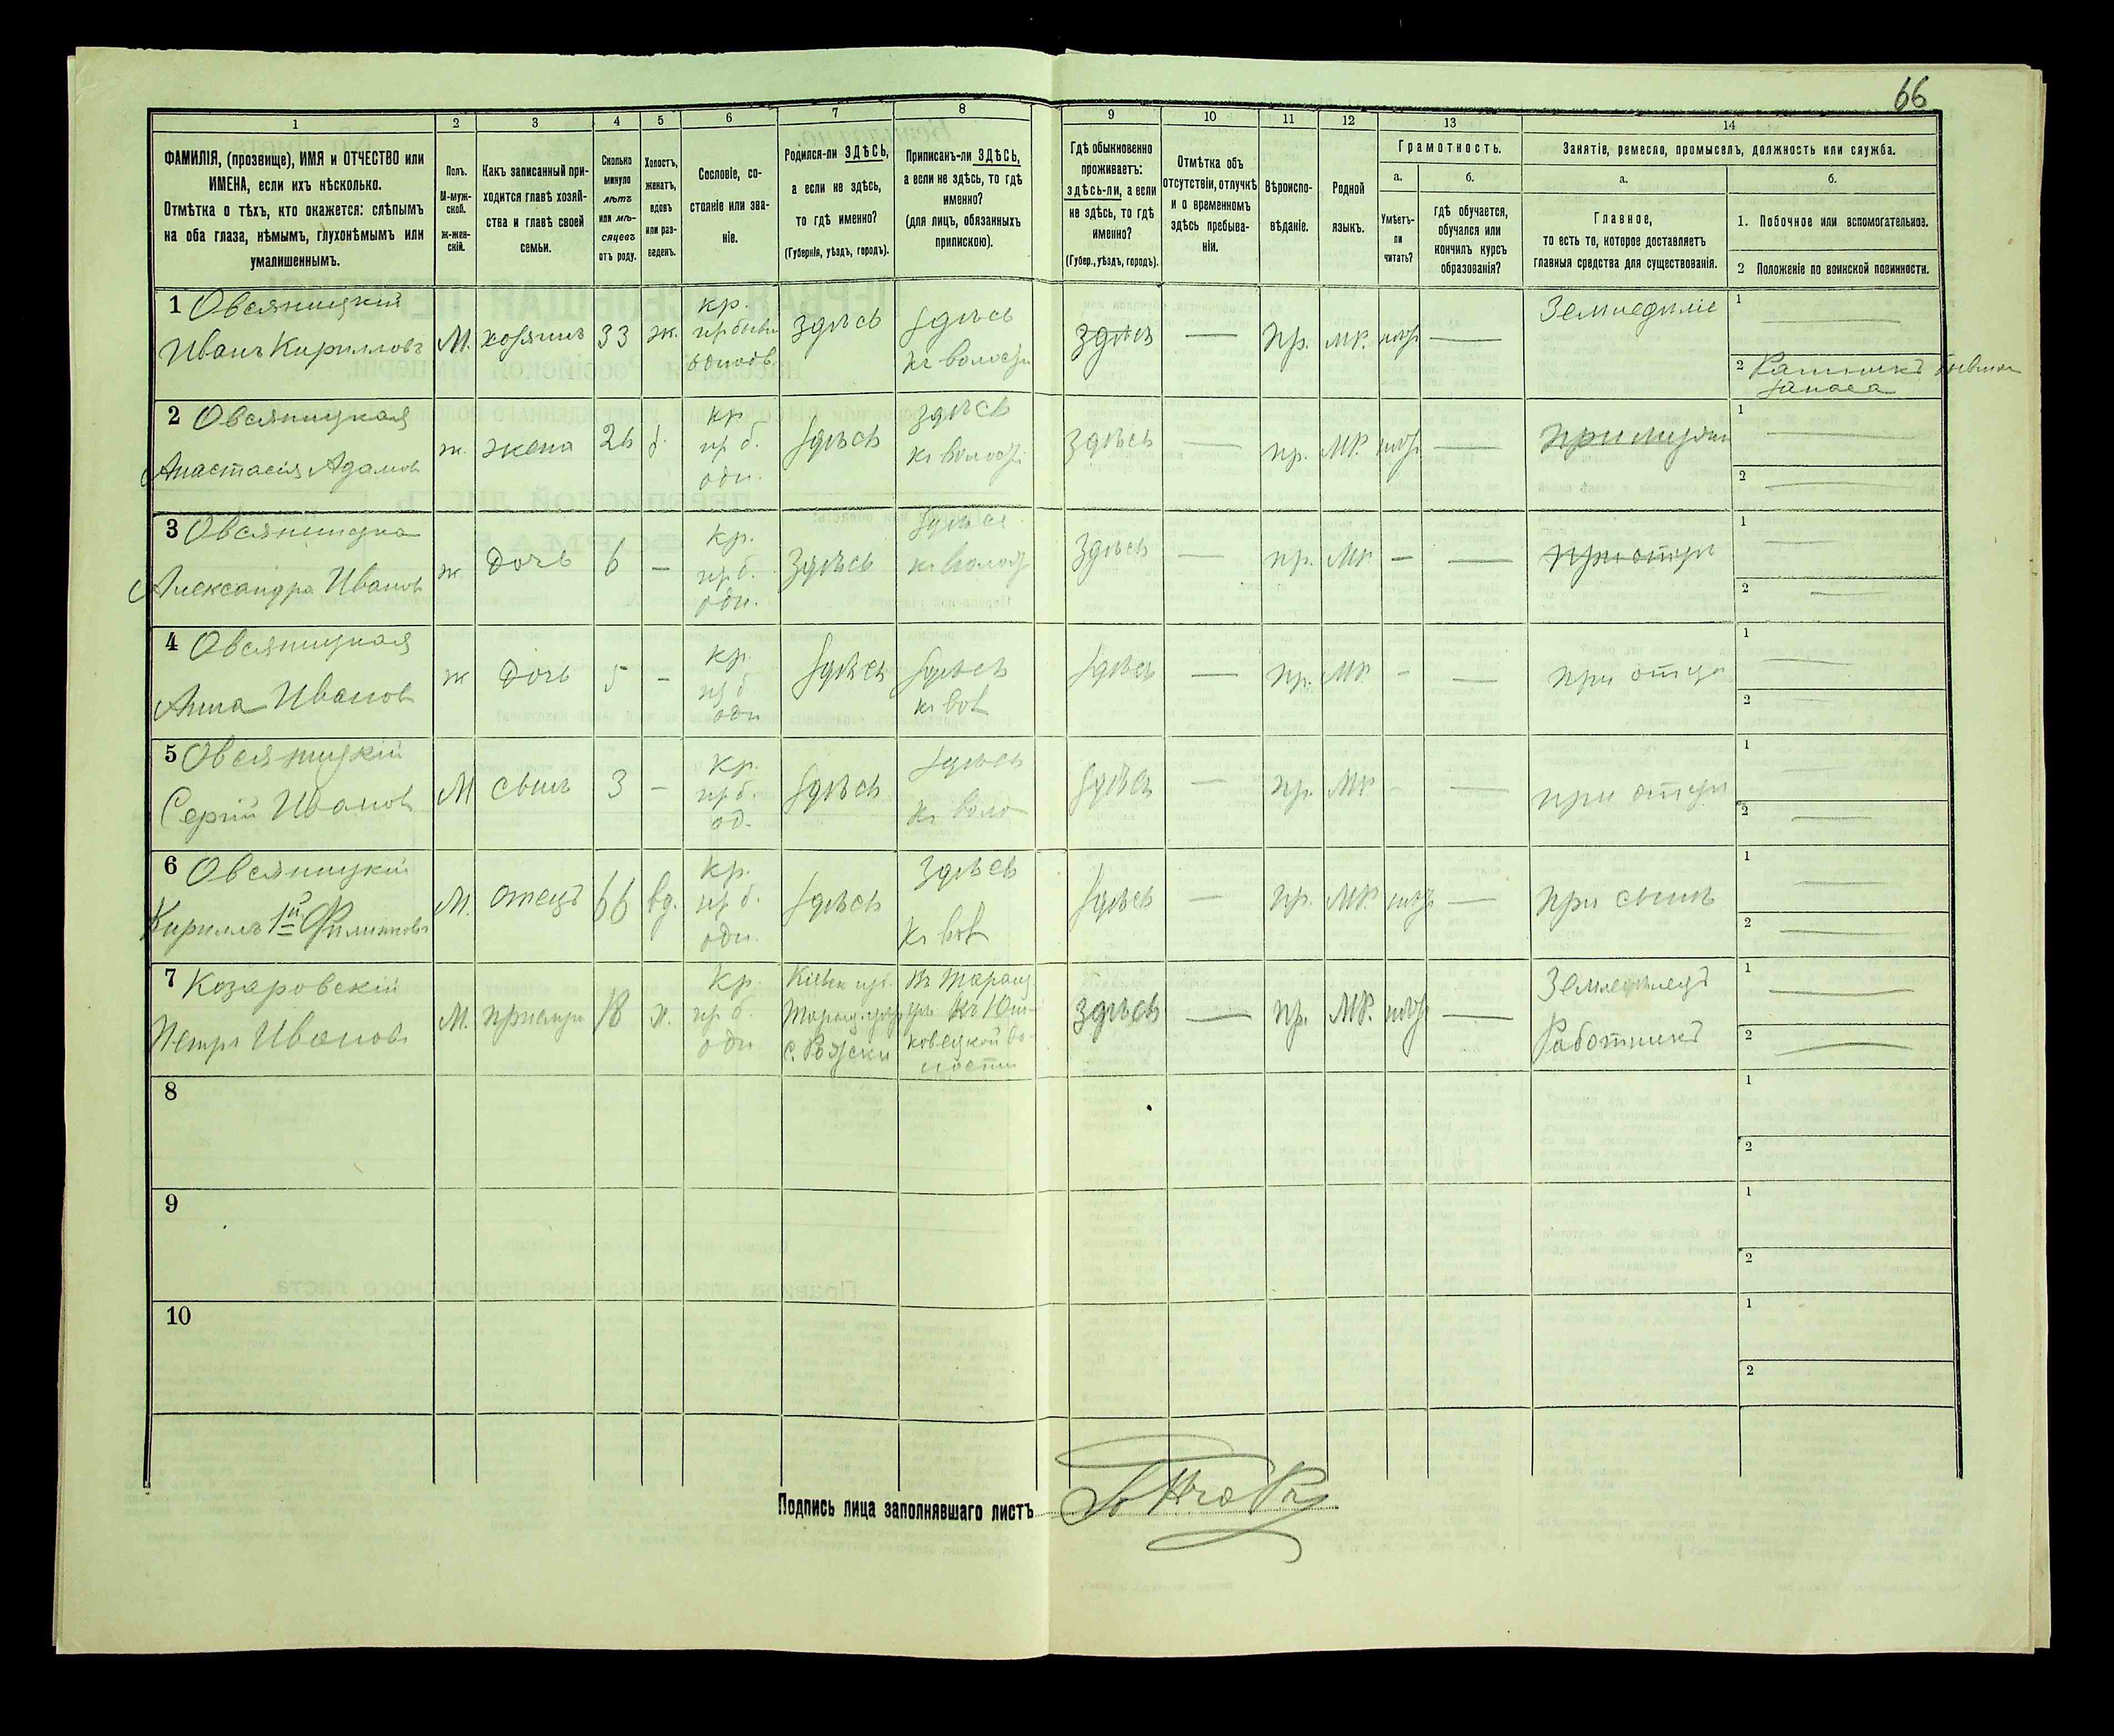 66
1
2
3
4
5
6
7
8
9
10
11
12
13
14
ФАМИЛІЯ, (прозвище), ИМЯ и ОТЧЕСТВО или
ИМЕНА, если ихъ нѣсколько.
Отмѣтка о тѣхъ, кто окажется: слѣпымъ
на оба глаза, нѣмымъ, глухонѣмымъ или
умалишеннымъ.
Полъ.
М-муж-
ской.
ж-жен-
скій.
Какъ записанный при-
ходится главѣ хозяй-
ства и главѣ своей
семьи.
Сколько
минуло
лѣтъ
или мѣ-
сяцевъ
отъ роду.
Холостъ,
женатъ,
вдовъ
или раз-
веденъ.
Сословіе, со-
стояніе или зва-
ніе.
Родился-ли ЗДѢСЬ,
а если не здѣсь,
то гдѣ именно?
(Губернія, уѣздъ, городъ).
Приписанъ-ли ЗДѢСЬ,
а если не здѣсь, то гдѣ
именно?
(для лицъ, обязанныхъ
припискою).
Гдѣ обыкновенно
проживаетъ:
здѣсь-ли, а если
не здѣсь, то гдѣ
именно?
(Губер., уѣздъ, городъ).
Отмѣтка объ
отсутствіи, отлучкѣ
и о временномъ
здѣсь пребыва-
ніи.
Вѣроиспо-
вѣданіе.
Родной
языкъ.
Грамотность.
а.
Умѣетъ-
ли
читать?
б.
гдѣ обучается,
обучался или
кончилъ курсъ
образованія?
Занятіе, ремесло, промыселъ, должность или служба.
а.
Главное,
то есть то, которое доставляетъ
главныя средства для существованія.
б.
1. Побочное или вспомогательное.
2 Положеніе по воинской повинности.
1 Овсяницкій
Иванъ Кирилловъ
М.
хозяинъ
33
ж.
кр.
здѣсь
здѣсь
къ волости
здѣсь
—
пр.
МР.
—
Земледѣліе
1 —
2 Ратникъ
запаса
2 Овсяницкая
Анастасія Адамов
ж.
жена
26
кр
пр б.
одн.
здѣсь
здѣсь
здѣсь
—
пр.
МР.
—
при мужѣ
1 —
2 —
3
Александра Иванов
ж
дочь
6
—
кр.
пр б.
одн.
здѣсь
здѣсь
здѣсь
—
пр.
МР
—
—
при отцѣ
1 —
2 —
4 Овсяницкая
Анна Иванов
ж
дочь
5
—
кр.
пр б
одн
здѣсь
здѣсь
здѣсь
—
пр.
МР
-
—
при отцѣ
1 —
2 —
5 Овсяницкій
Сергій Иванов
М
сынъ
3
—
кр.
пр б.
од.
здѣсь
здѣсь
здѣсь
—
пр.
МР
-
—
при отцѣ
1 —
2 —
6 Овсяницкій
Кириллъ 1й
М.
отецъ
66
вд.
кр.
пр б.
одн.
здѣсь
здѣсь
здѣсь
—
пр.
МР.
—
при сынѣ
1 —
2 —
7 Козаровскій
Петръ Иванов
М.
18
х.
кр.
пр б.
одн
здѣсь
—
пр.
МР.
—
Земледѣлецъ
Работникъ
1 —
2 —
8
1
2
9
1
2
10
1
2
Подпись лица заполнявшаго листъ